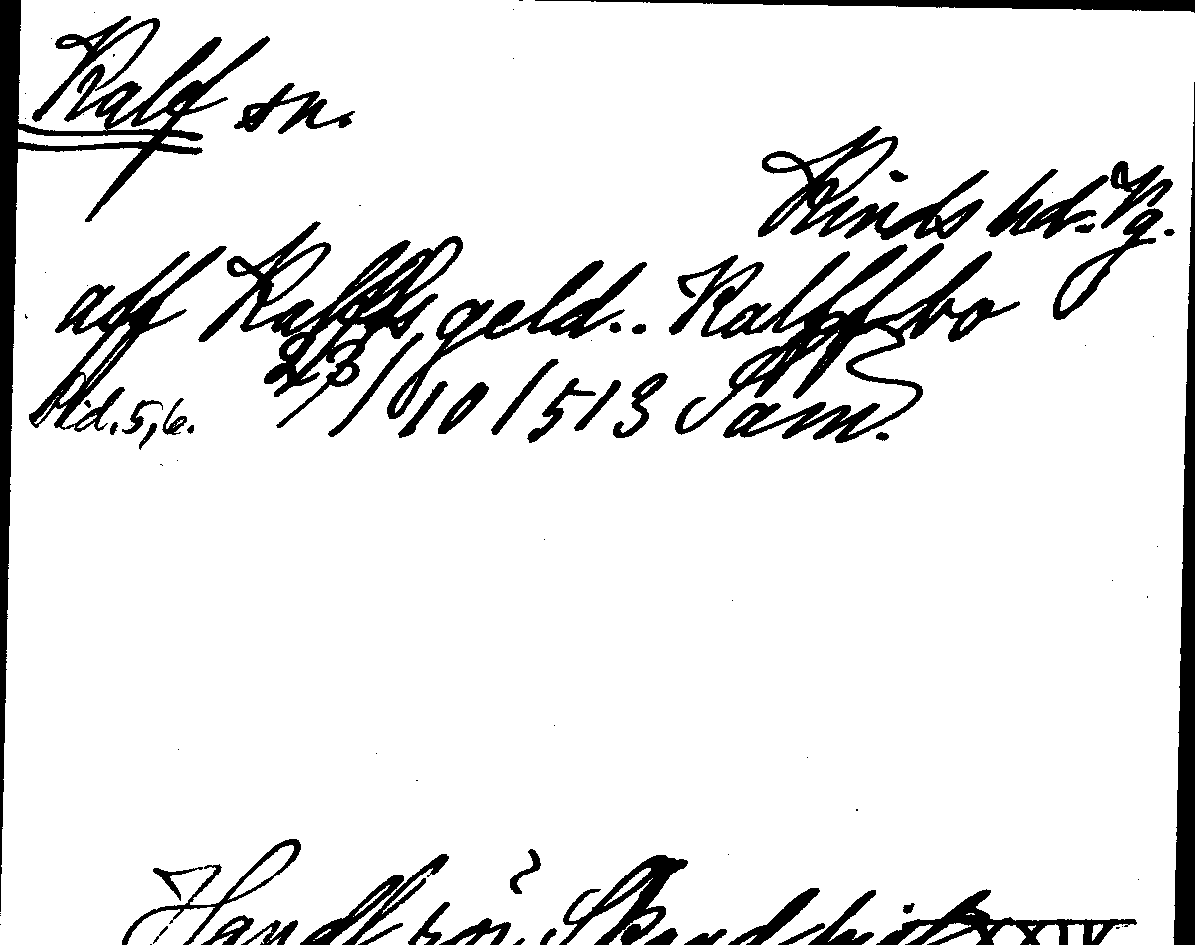 Kalf sn.
Kinds hd. Vg.
aff Kalffs geld.. Kalff bo
Sid. 5,6. 23/10 1513 Sam.
Handl rör Skand hist XXIV